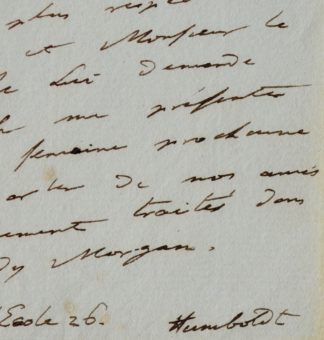 plus respe
et Monsieur le
Lui demande
me présenter
semaine prochaine
de nos amis
ement traités dans
dy Morgan.
Ecole 26. Humboldt